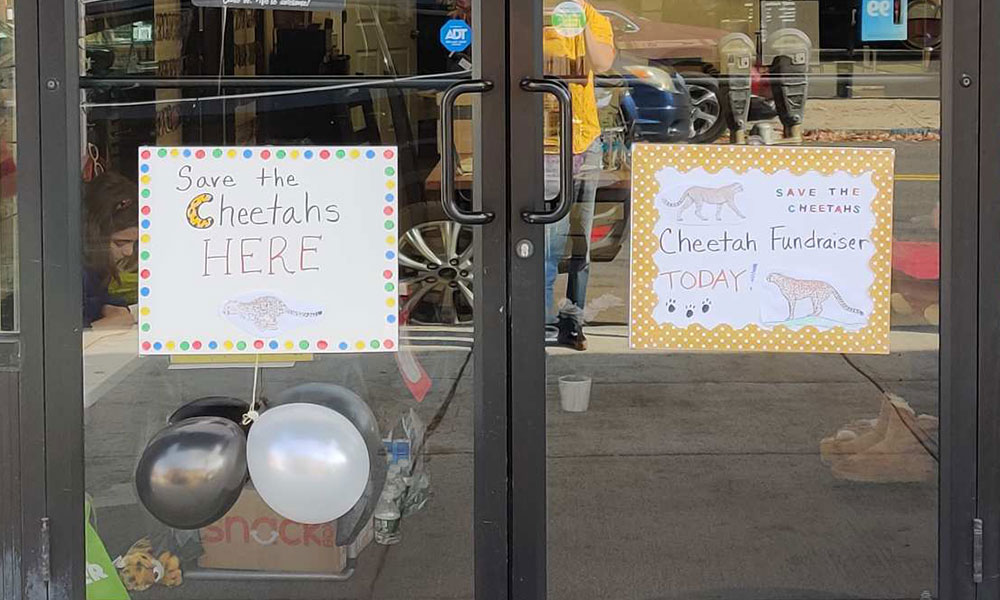 ADT
Save the
Cheetahs
HERE
SAVE THE
CHEETAHS
Cheetah Fundraiser
TODAY!
snack